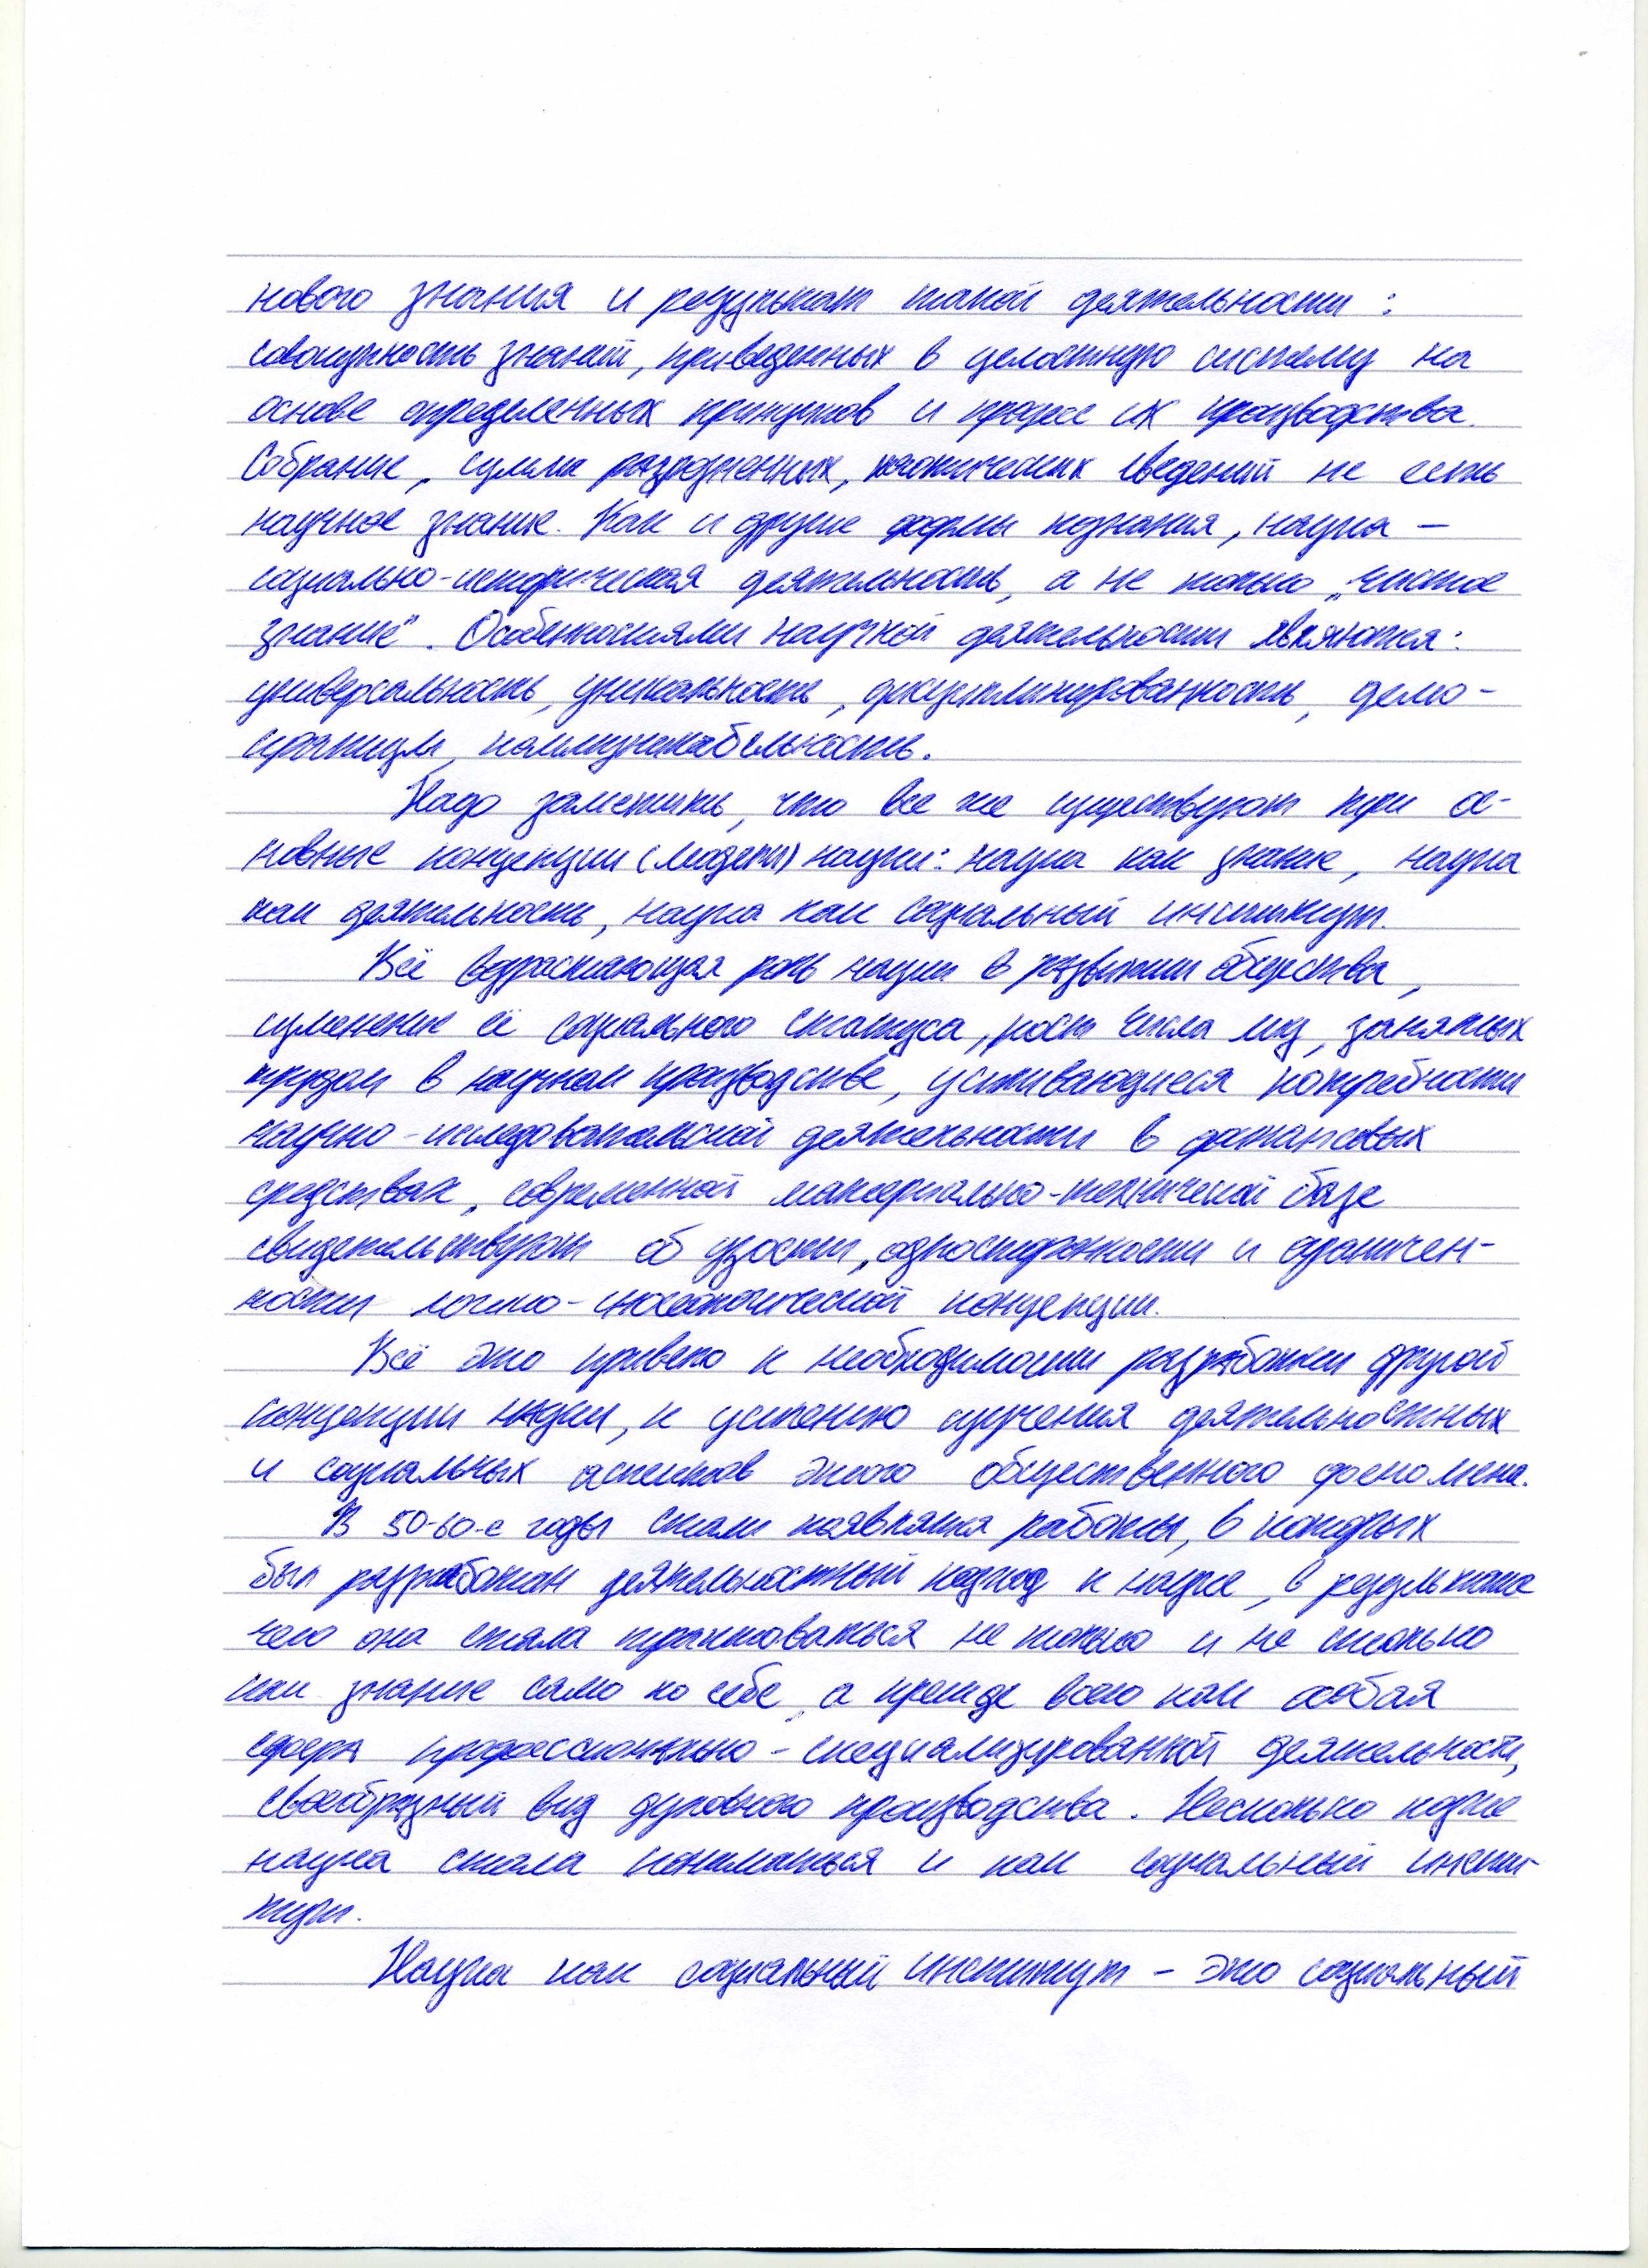 нового знания и результат такой деятельности :
совокупность знаний, приведенных в целостную систему на
основе определенных принципов и процесс их производства.
Собрание, сумма разрозненных, хаотических сведений не есть
научное знание. Как и другие формы познания, наука –
социально-историческая деятельность, а не только „чистое
знание". Особенностями научной деятельности являются:
универсальность, уникальность, дисциплинированность, демо-
кратизм, коммуникабельность.
Надо заметить, что все же существуют три ос-
новные концепции (модели) науки: наука как знание, наука
как деятельность, наука как социальный институт.
Всё возрастающая роль науки в развитии общества,
изменение её социального статуса, рост числа лиц, занятых
трудом в научном производстве, усиливающиеся потребности
научно-исследовательской деятельности в финансовых
средствах, современной материально-технической базе
свидетельствуют об узости, односторонности и ограничен-
ности логико-гносеологической концепции.
Всё это привело к необходимости разработки другой
концепции науки, к усилению изучения деятельностных
и социальных аспектов этого общественного феномена.
В 50-60-е годы стали появляться работы, в которых
был разработан деятельностный подход к науке, в результате
чего она стала трактоваться не только и не столько
как знание само по себе, а прежде всего как особая
сфера профессионально-специализированной деятельности,
своеобразный вид духовного производства. Несколько позже
наука стала пониматься и как социальный инсти-
тут.
Наука как социальный институт – это социальный